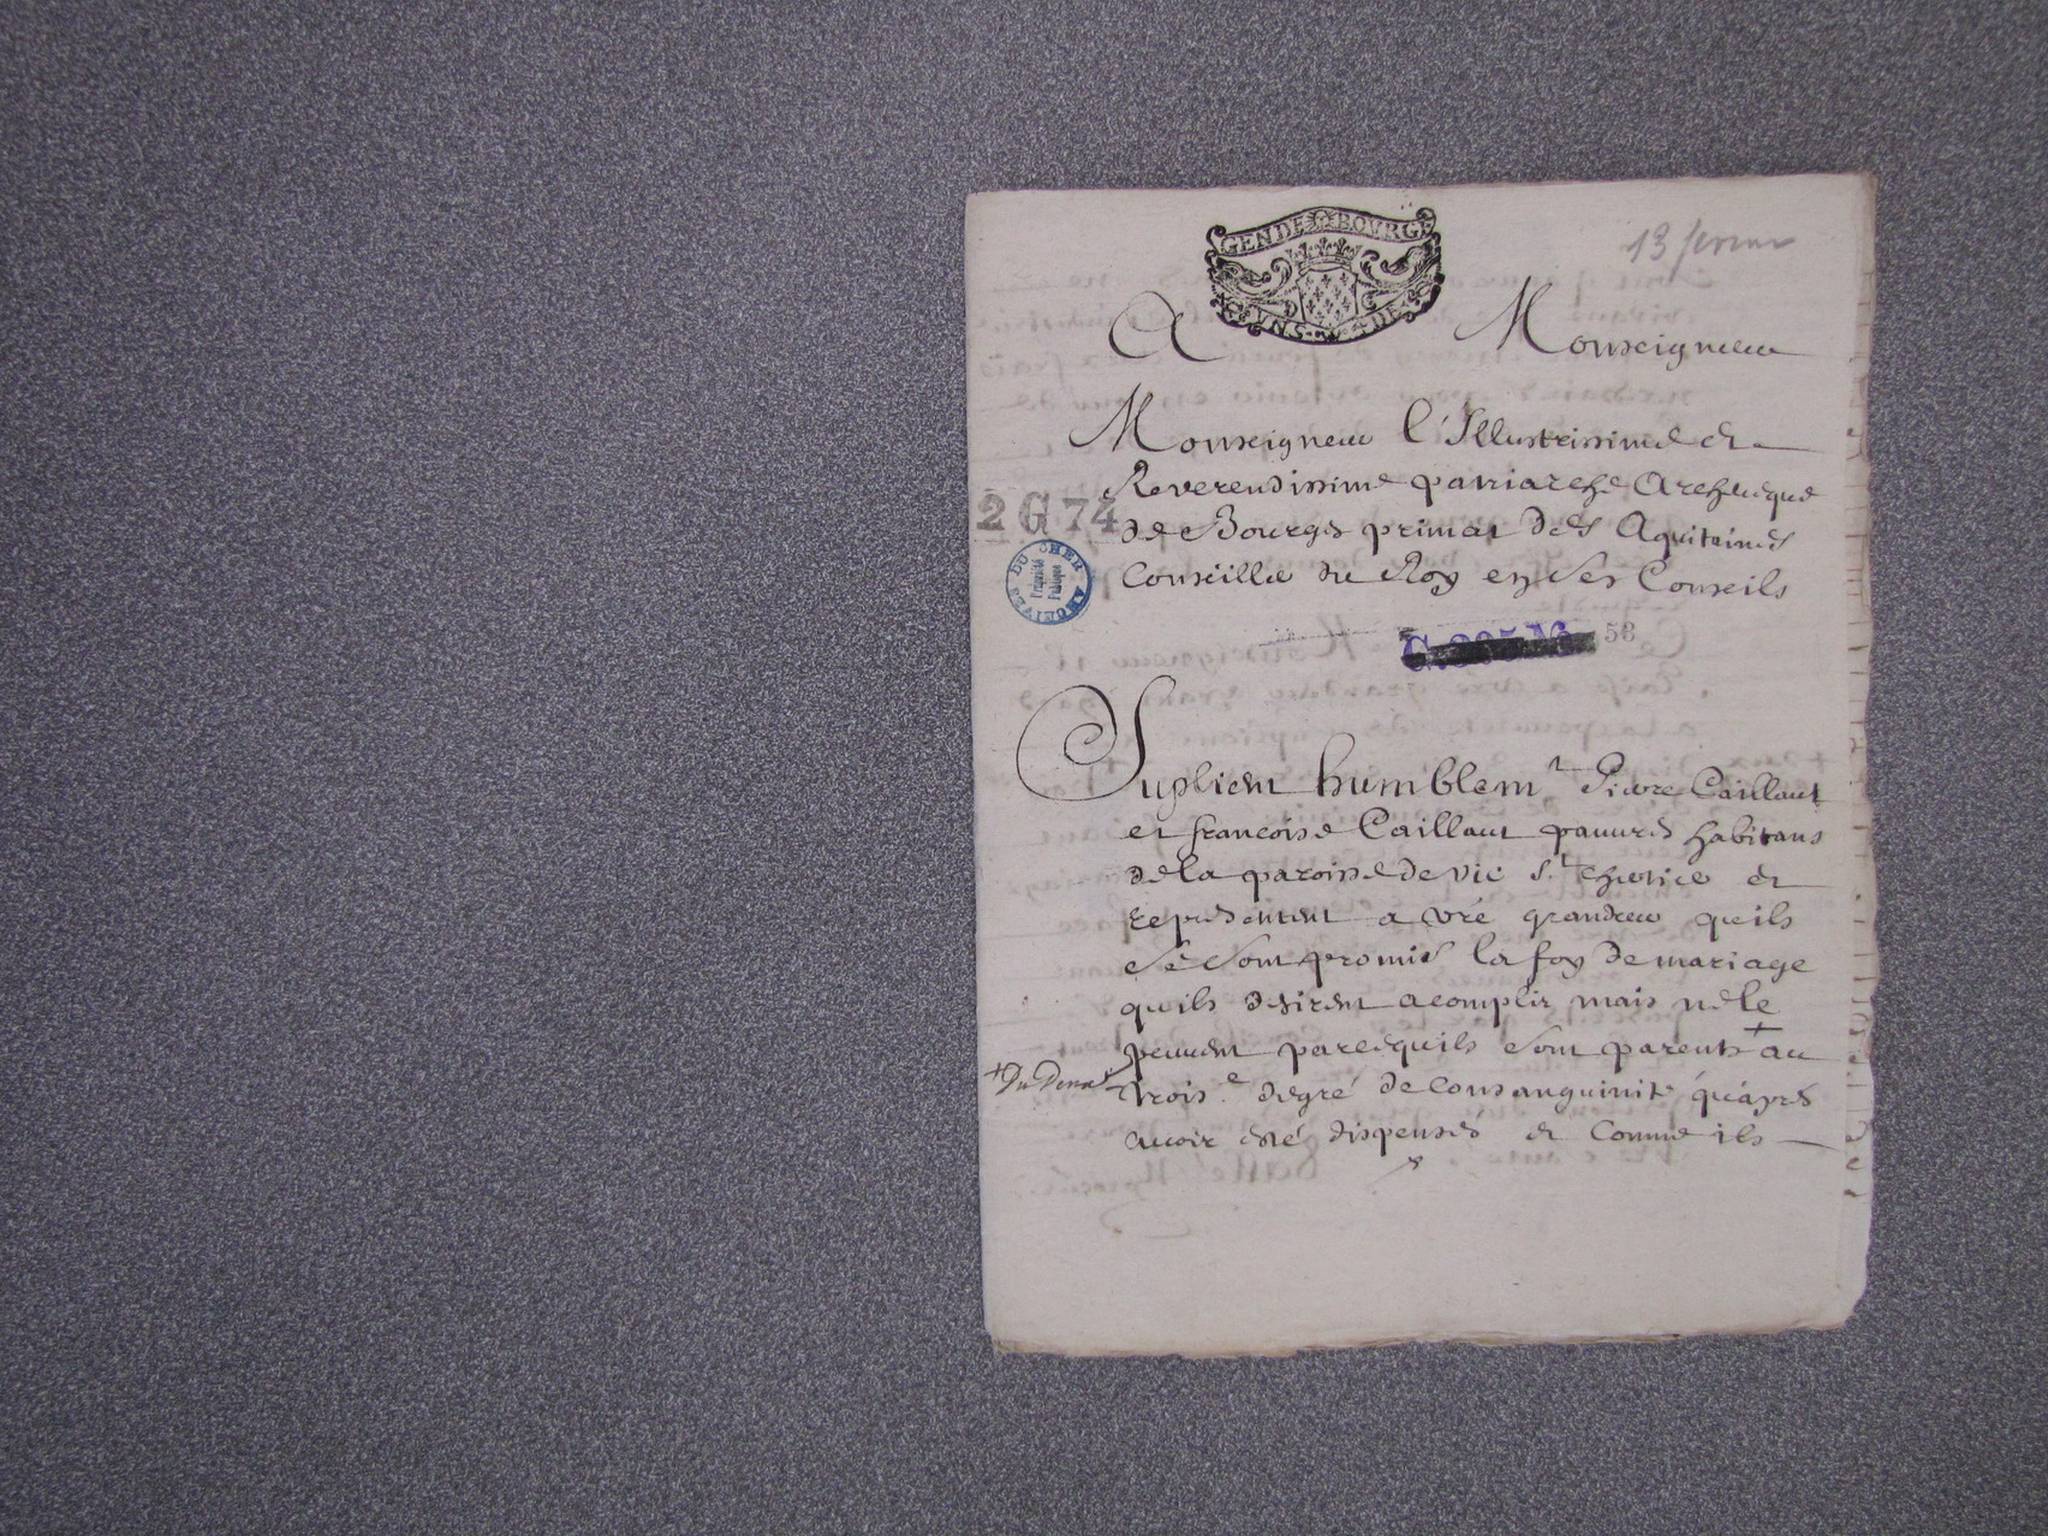 GENDE BOVRGE
VNS DE
13 fevrier
A Monseigneur
Monseigneur l'Illustrissime et
Reverendissime patriarche Archevêque
de Bourges primat des Aquitaines
Conseiller du Roy en ses Conseils
2 G 74
ARCHIVES DU CHER
Propriété
Publique
56
Suplient humblemt Pierre Caillaut
et francoise Caillaut pauures habitans
de la paroisse de vic St
representent a vre grandeur qu'ils
se sont promis la foy de mariage
quils desirent acomplir mais ne le
peuuent parcequils sont parents + au
+ Du
trois.e degré de Consanguinité qu'apres
auoir esté dispensés et Comme ils